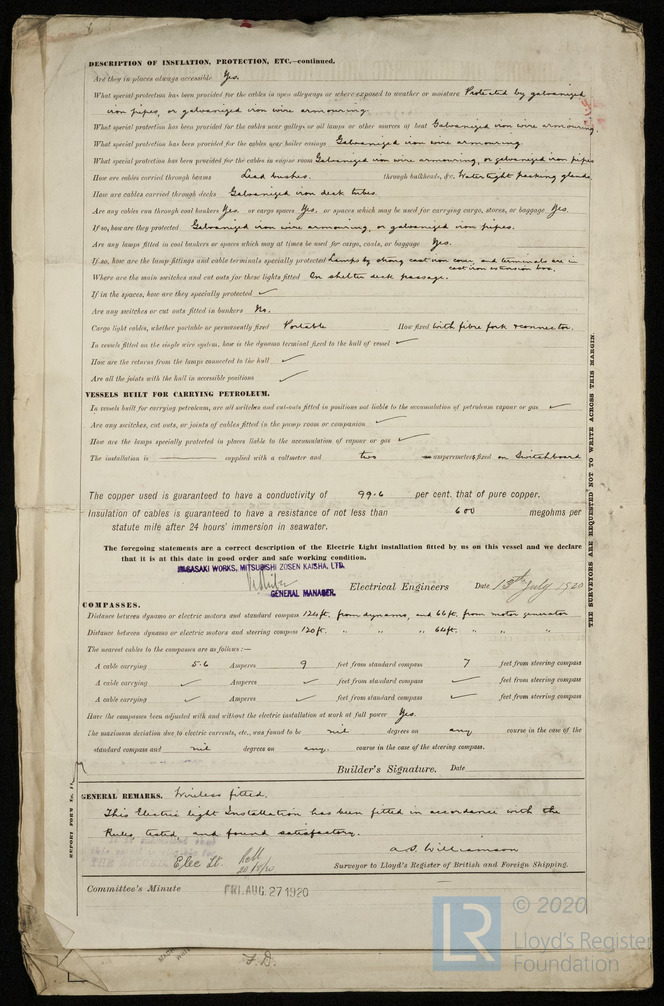 DESCRIPTION OF INSULATION, PROTECTION, ETC.—continued.
Are they in places always accessible Yes.
What special protection has been provided for the cables in open alleyways or where exposed to weather or moisture Protected by galvanized
iron pipes, or galvanized iron wire armouring.
What special protection has been provided for the cables near galleys or oil lamps or other sources of heat Galvanized iron wire armouring.
What special protection has been provided for the cables near boiler casings Galvanized iron wire armouring
What special protection has been provided for the cables in engine room Galvanized iron wire armouring, or galvanized iron pipes
How are cables carried through beams Lead bushes. through bulkheads, &c. Water tight packing glands.
How are cables carried through decks Galvanized iron deck tubes.
Are any cables run through coal bunkers Yes. or cargo spaces Yes. or spaces which may be used for carrying cargo, stores, or baggage Yes.
If so, how are they protected Galvanized iron wire armouring, or galvanized iron pipes.
Are any lamps fitted in coal bunkers or spaces which may at times be used for cargo, coals, or baggage Yes.
If so, how are the lamp fittings and cable terminals specially protected Lamps by strong cast iron cover, and terminals are in
cast iron extension box.
Where are the main switches and cut outs for these lights fitted In shelter deck passage.
If in the spaces, how are they specially protected ✓
Are any switches or cut outs fitted in bunkers No.
Cargo light cables, whether portable or permanently fixed Portable How fixed With fibre fork & connector.
In vessels fitted on the single wire system, how is the dynamo terminal fixed to the hull of vessel ✓
How are the returns from the lamps connected to the hull ✓
Are all the joints with the hull in accessible positions ✓
VESSELS BUILT FOR CARRYING PETROLEUM.
In vessels built for carrying petroleum, are all switches and cut-outs fitted in positions not liable to the accumulation of petroleum vapour or gas ✓
Are any switches, cut outs, or joints of cables fitted in the pump room or companion ✓
How are the lamps specially protected in places liable to the accumulation of vapour or gas ✓
The installation is supplied with a voltmeter and two amperemeters fixed on Switchboard
The copper used is guaranteed to have a conductivity of 99.6 per cent. that of pure copper.
Insulation of cables is guaranteed to have a resistance of not less than 600 megohms per
statute mile after 24 hours' immersion in seawater.
The foregoing statements are a correct description of the Electric Light installation fitted by us on this vessel and we declare
that it is at this date in good order and safe working condition.
NAGASAKI WORKS, MITSUBISHI ZOSEN KAISHA, LTD.
GENERAL MANAGER.
Electrical Engineers Date 15th July 1920
COMPASSES.
Distance between dynamo or electric motors and standard compass 124ft. from dynamo, and 66ft. from motor generator
Distance between dynamo or electric motors and steering compass 120ft. " " " 64ft. " " "
The nearest cables to the compasses are as follows:—
A cable carrying 5.6 Amperes 9 feet from standard compass 7 feet from steering compass
A cable carrying ✓ Amperes ✓ feet from standard compass ✓ feet from steering compass
A cable carrying ✓ Amperes ✓ feet from standard compass ✓ feet from steering compass
Have the compasses been adjusted with and without the electric installation at work at full power Yes.
The maximum deviation due to electric currents, etc., was found to be nil degrees on any course in the case of the
standard compass and nil degrees on any. course in the case of the steering compass.
Builder's Signature. Date
GENERAL REMARKS. Wireless fitted.
This Electric light Installation has been fitted in accordance with the
Rules, tested, and found satisfactory.
A.D. Williamson
Elec Lt.
Surveyor to Lloyd's Register of British and Foreign Shipping.
Committee's Minute FRI. AUG. 27 1920
THE SURVEYORS ARE REQUESTED NOT TO WRITE ACROSS THIS MARGIN.
LR © 2020
Lloyd's Register
Foundation